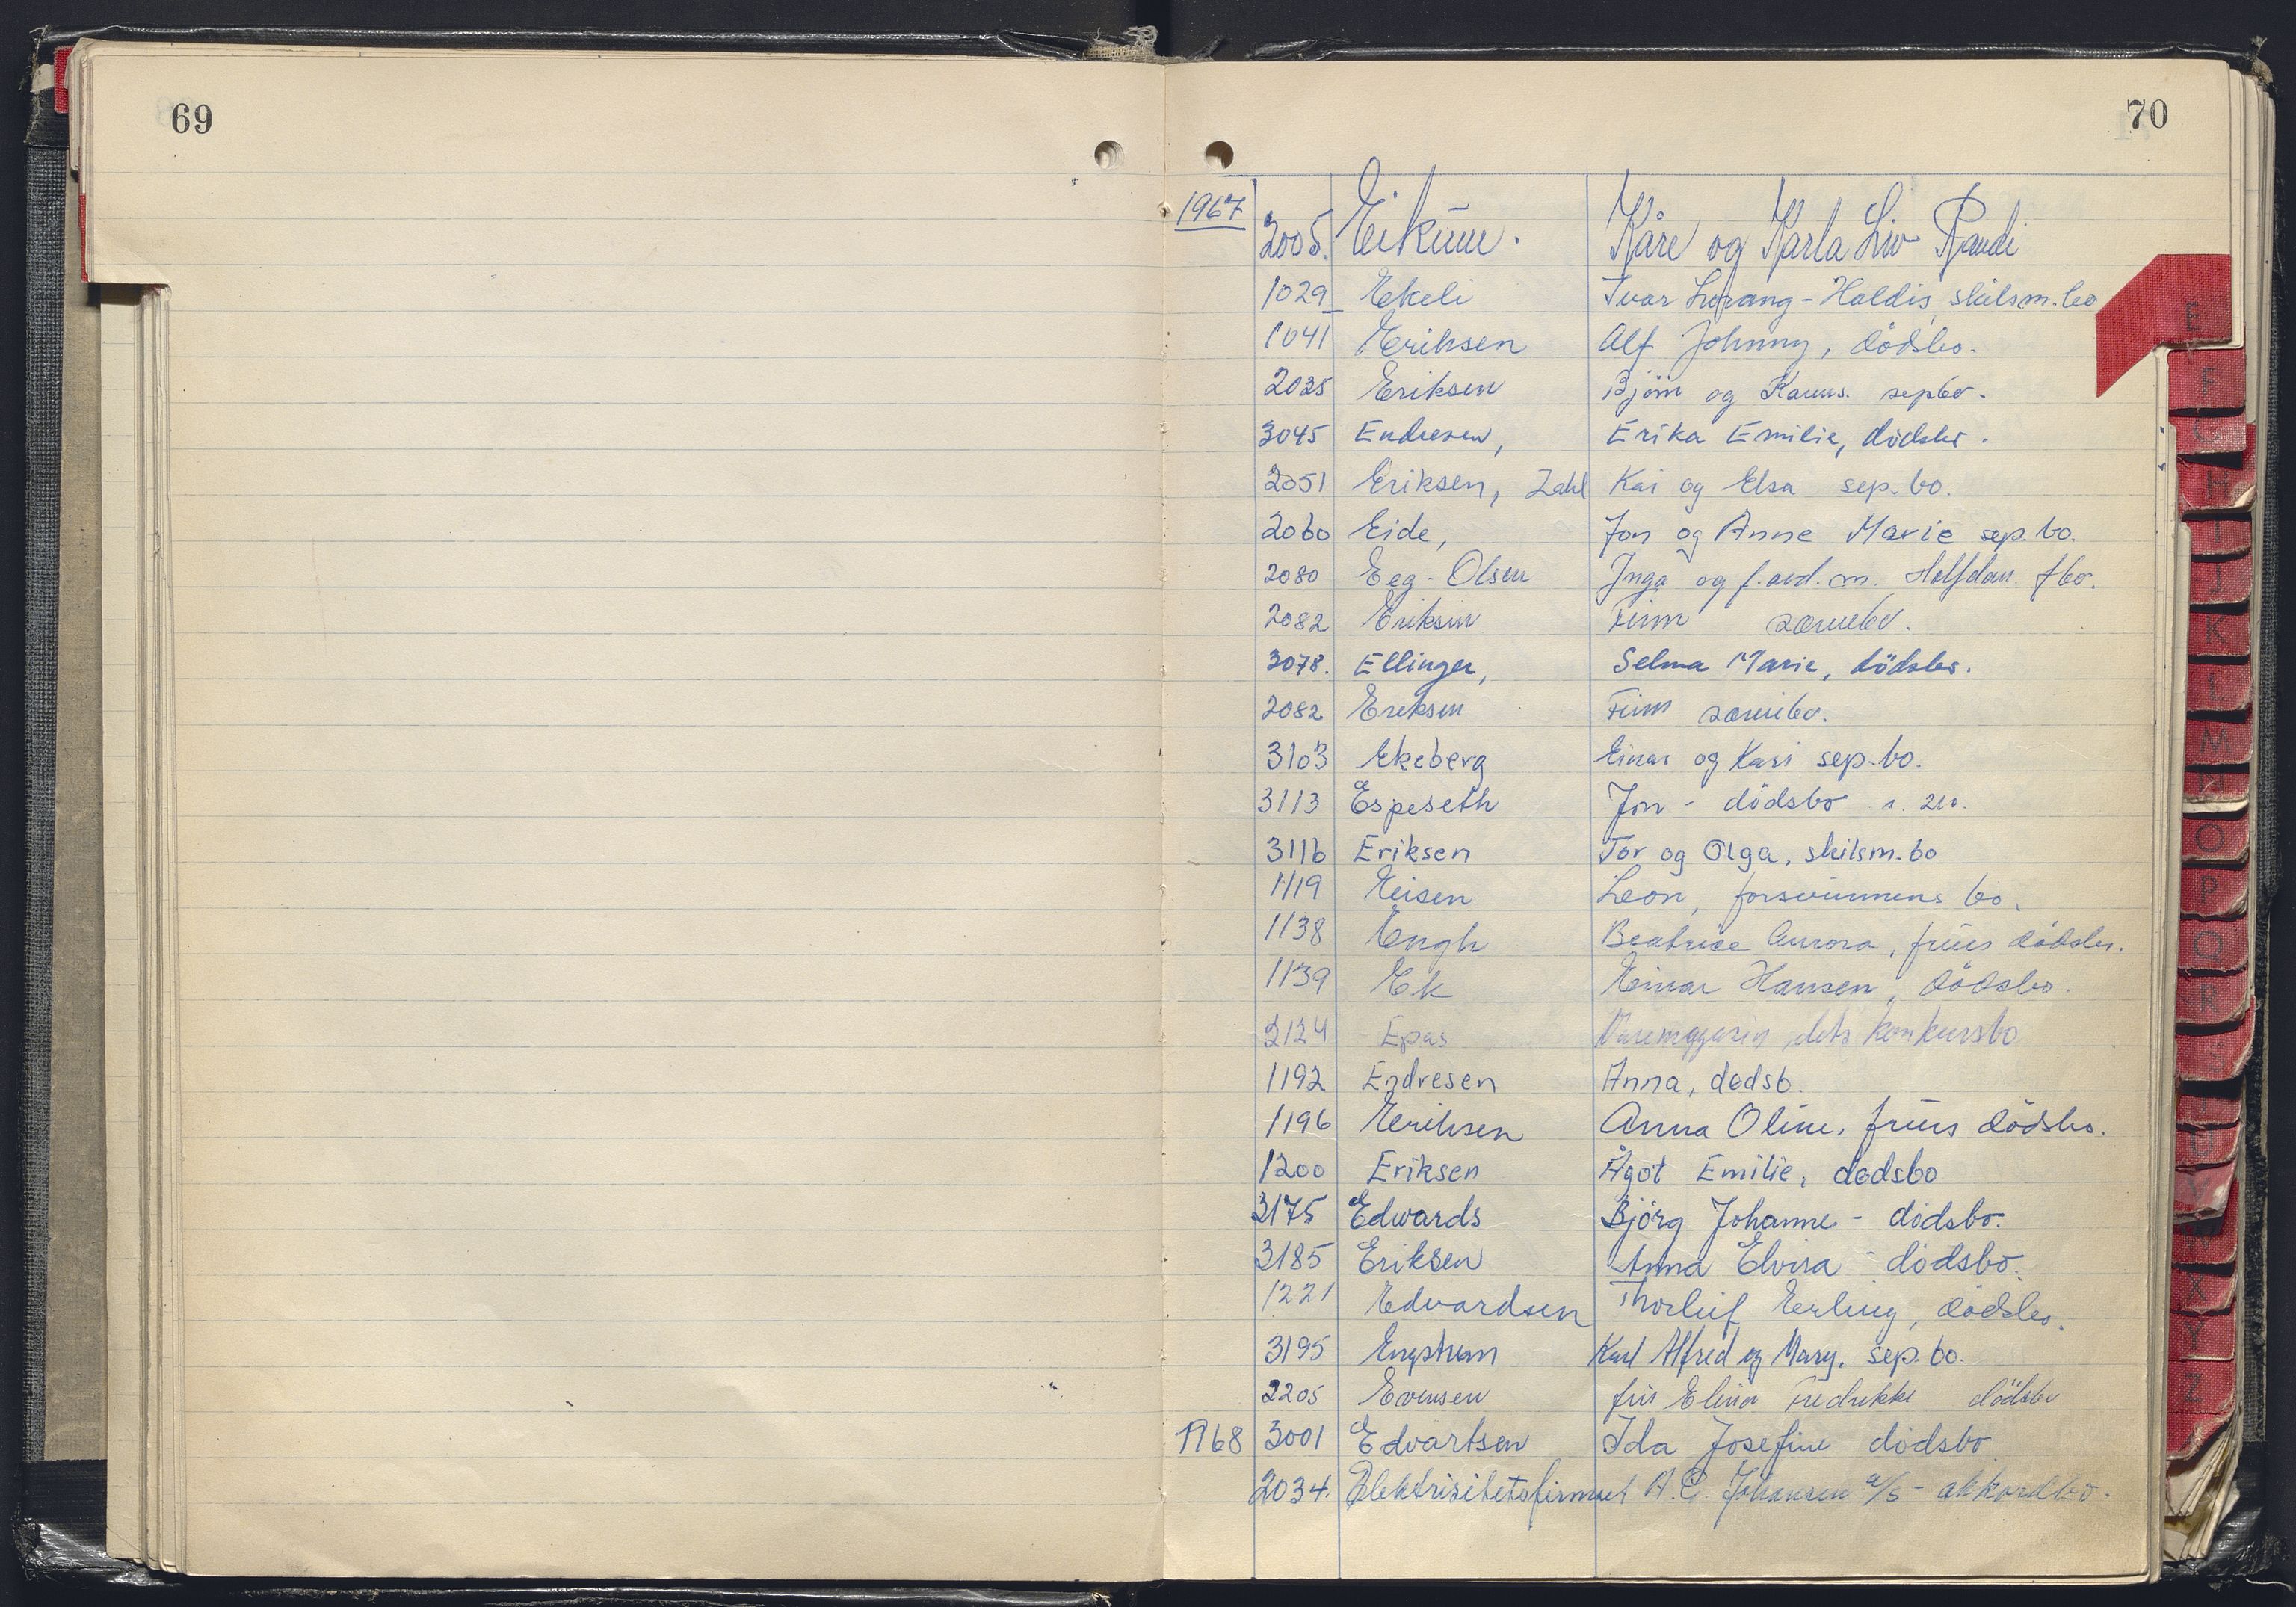 69
70
1967
2005. Eikum. Kåre og Karla Liv Randi
1029 Ekeli Ivar Lorang - Haldis, skilsm.bo
1041 Eriksen Alf Johnny, dödsbo.
2035 Eriksen Björn og sepbo.
3045 Endresen, Erika Emilie, dödsbo.
2051 Eriksen, Zahl Kai og Elsa sep.bo.
2060 Eide, Jon og Anne Marie sep.bo.
2080 Eeg-Olsen Inga og f.avd.m. Halfdan fbo.
2082 Eriksen Finn særeiebo.
3078. Ellinger, Selma Marie, dödsbo.
2082 Eriksen Finn særeiebo.
3103 Ekeberg Einar og Kari sep.bo.
3113 Espeseth Jon - dödsbo
3116 Eriksen Tor og Olga, skilsm.bo
1119 Eisen Leon, forsvunnens bo.
1138 Engh Beatrice Aurora, frues dödsbo.
1139 Ek Einar Hansen, dödsbo.
2124 Epas Varemagasin dets konkursbo
1192 Endresen Anna, dødsb.
1196 Eriksen Anna Oline, frues dödsbo.
1200 Eriksen Ågot Emilie, dødsbo
3175 Edwards Björg Johanne - dödsbo.
3185 Eriksen Anna Elvira - dödsbo.
1221 Edvardsen Thorleif Erling, dödsbo.
3195 Engstrøm Karl Alfred og Mary. sep.bo.
2205 Evensen fru Elina Fredrikke dödsbo
1968 3001 Edvartsen Ida Josefine dödsbo
2034. Elektrisitetsfirmaet A.G. Johansen a/s - akkordbo.
E
F
G
H
I
J
K
L
M
N
O
P
Q
R
S
X
Y
Z